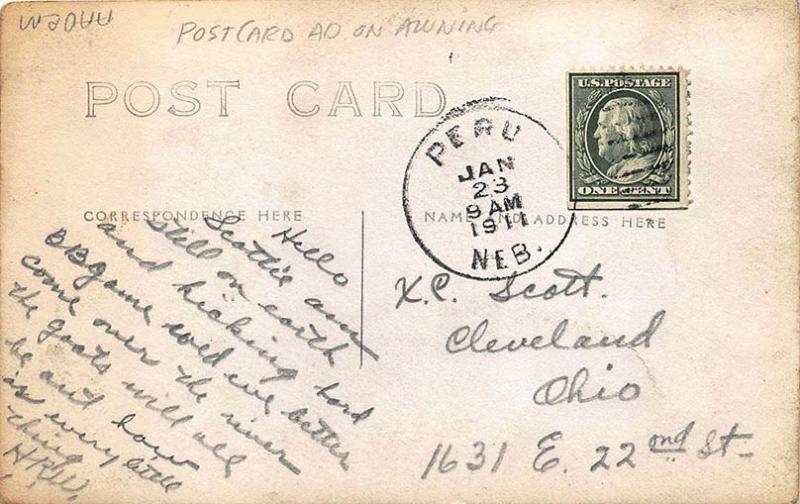 WƎOAA
POSTCARD AD ON AWNING
POST CARD
U.S. POSTAGE
ONE CENT
PERU
JAN
23
9 AM
1911
NEB.
CORRESPONDENCE HERE
NAME AND ADDRESS HERE
Hello
Scottie am
still on earth
and kicking hard
BBgame
come over the river
the goats will all
be out how
is every little
thing
HRW.
X.C. Scott.
Cleveland
Ohio
1631 E. 22nd St-